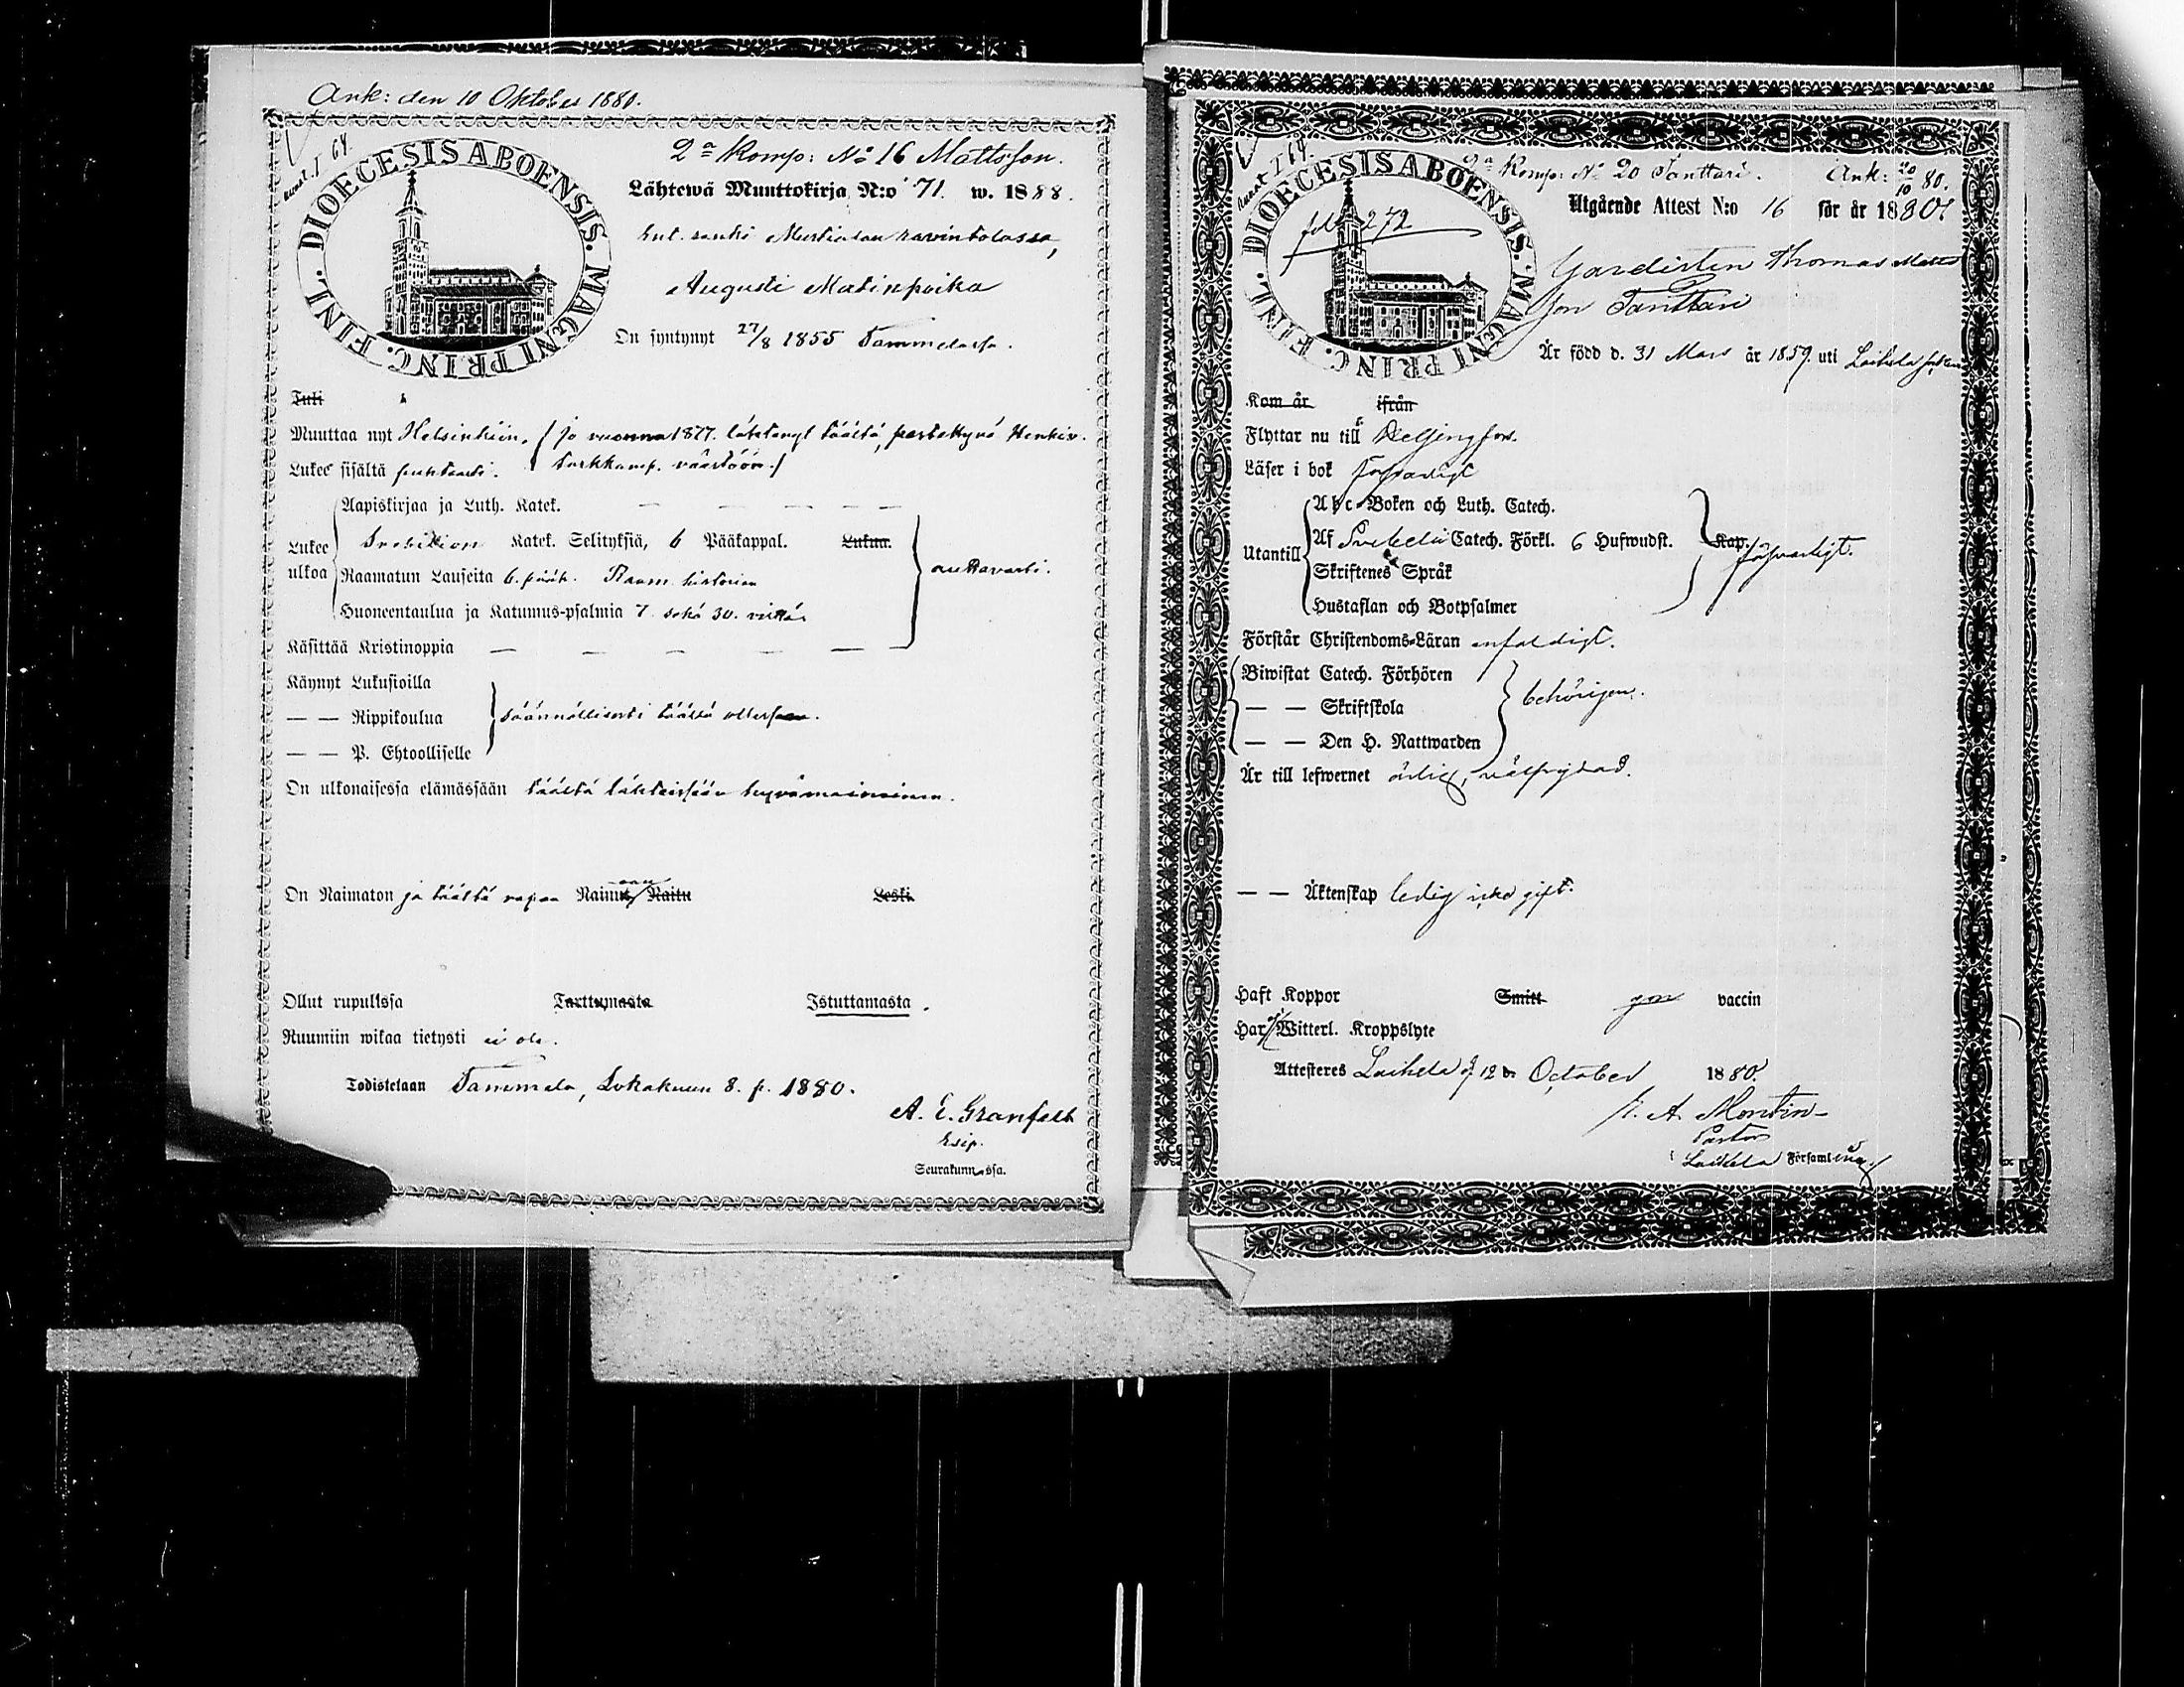 Ank: den 10 Oktober 1880.
DIOECESIS ABOENSIS. MAGNI PRINC. FINL.
2a Komp: No 16 Mattsson.
Lähtewä Muuttokirja N:o 71. w. 1888.
Augusti Matinpoika
On syntynyt 27/8 1855 Tammelassa.
Tuli
Muuttaa nyt Helsinkiin. (jo vuonna 1877. lähtenyt täältä,
Lukee sisältä puhtaasti.
Aapiskirjaa ja Luth. Katek. — — — — —
Lukee ulkoa
Svebilion Katek. Selityksiä, 6 Pääkappal. Lukua.
Raamatun Lauseita 6. pääk. Raam. historian
Huoneentaulua ja Katumus-psalmia 7. sekä 30. virttä.
auttavasti.
Käsittää Kristinoppia — — — — — —
Käynyt Lukusioilla
— — Rippikoulua
säännöllisesti täällä ollessaan.
— — P. Ehtoolliselle
On ulkonaisessa elämässään täältä lähteissään hyvämaineinen.
On Naimaton ja täältä vapaa Naimaan Naitu Leski.
Ollut rupulissa Tarttumasta Istuttamasta.
Ruumiin wikaa tietysti ei ole.
Todistetaan Tammela, Lokakuun 8. p. 1880.
A. E. Granfelt
Seurakunnassa.
DIOECESIS ABOENSIS. MAGNI PRINC. FINL.
2a Komp: No 20 Tanttari. Ank: 20/10 80.
Utgående Attest N:o 16 för år 1880
272
Gardisten Thomas Matts
son Tanttari
Är född d. 31 Mars år 1859. uti Laihela
Kom år ifrån
Flyttar nu till Helsingfors.
Läser i bok försvarligt
Abc-Boken och Luth. Catech.
Utantill
Af Svebelii Catech. Förkl. 6 Hufwudst. Kap.
försvarligt.
Skriftenes Språk
Hustaflan och Botpsalmer
Förstår Christendoms-Läran enfaldigt.
Biwistat Catech. Förhören
— — Skriftskola
behörigen.
— — Den H. Nattwarden
Är till lefwernet ärlig, välfrejdad.
— — Äktenskap ledig icke gift.
Haft Koppor Smitt gm vaccin
Har ej Witterl. Kroppslyte
Attesteres Laihela d 12 October 1880.
A. Montin
Pastor
Laihela Församling